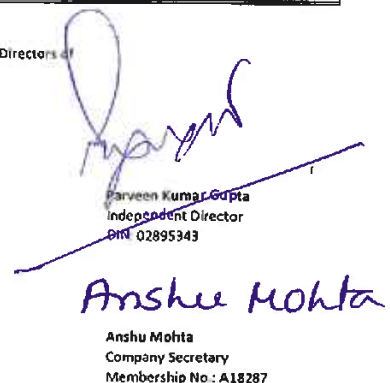 Directors of
Parveen Kumar Gupta
Independent Director
DIN 02895343
Anshu Mohta
Anshu Mohta
Company Secretary
Membership No.: A18287